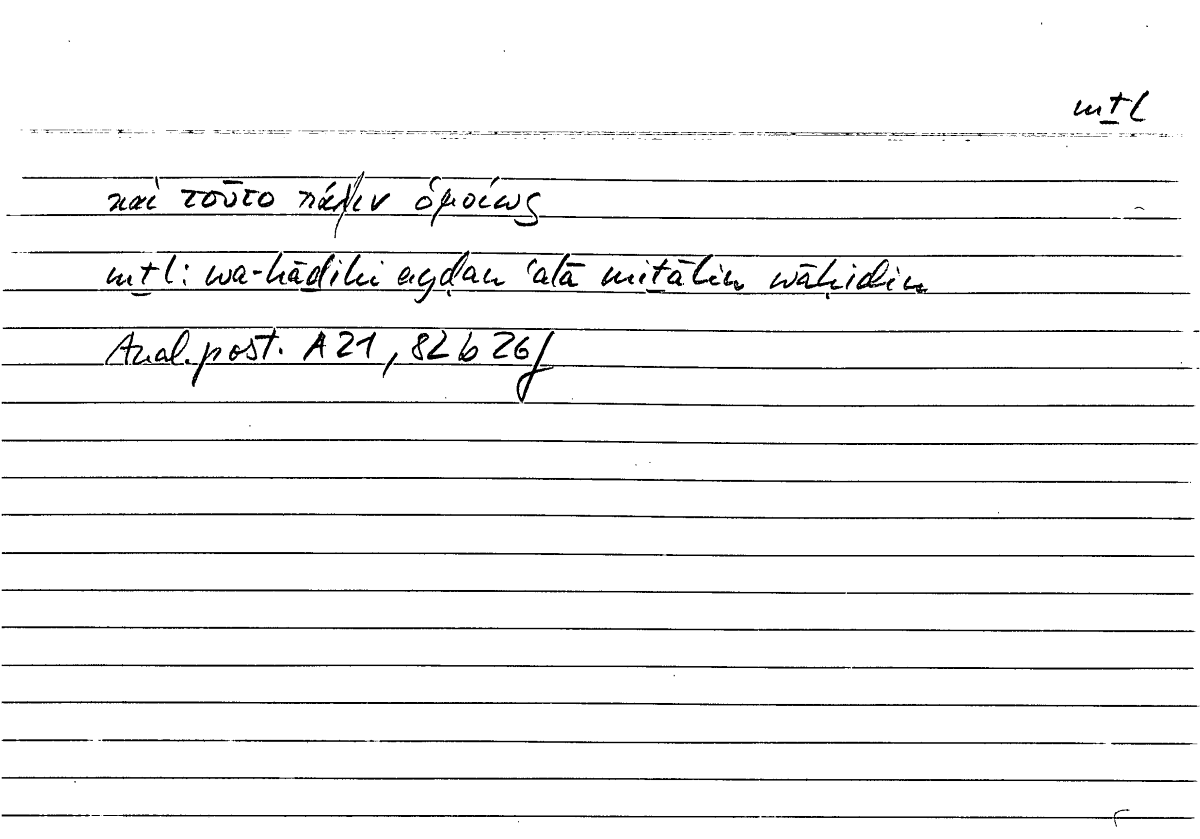 mṯl
καὶ τοῦτο πάλιν ὁμοίως
mṯl: wa-hāḏihi ayḍan ʿalā miṯālin wāḥidin
Anal. post. A 21, 82 b 26f